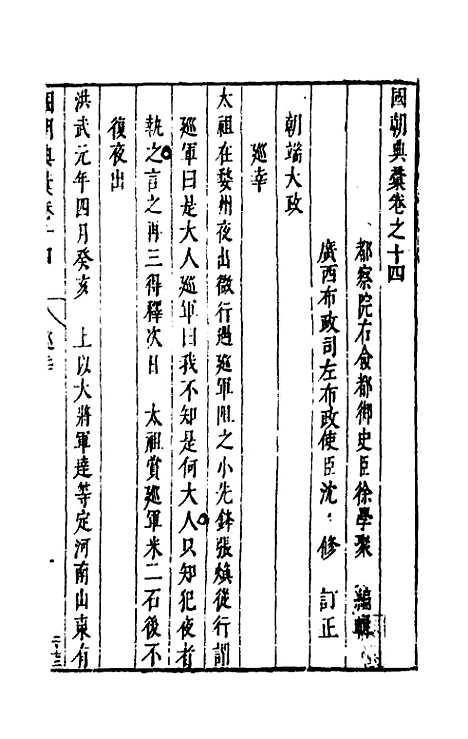 國朝典彙卷之十四
都察院右僉都御史臣徐學聚 編輯
廣西布政司左布政使臣沈 修 訂正
朝端大政
巡幸
太祖在婺州夜出微行過巡軍阻之小先鋒張煥從行謂
巡軍曰是大人巡軍曰我不知是何大人只知犯夜者
執之言之再三得釋次日 太祖賞巡軍米二石後不
復夜出
洪武元年四月癸亥 上以大將軍達等定河南山東有
國朝典彙卷十四 巡幸